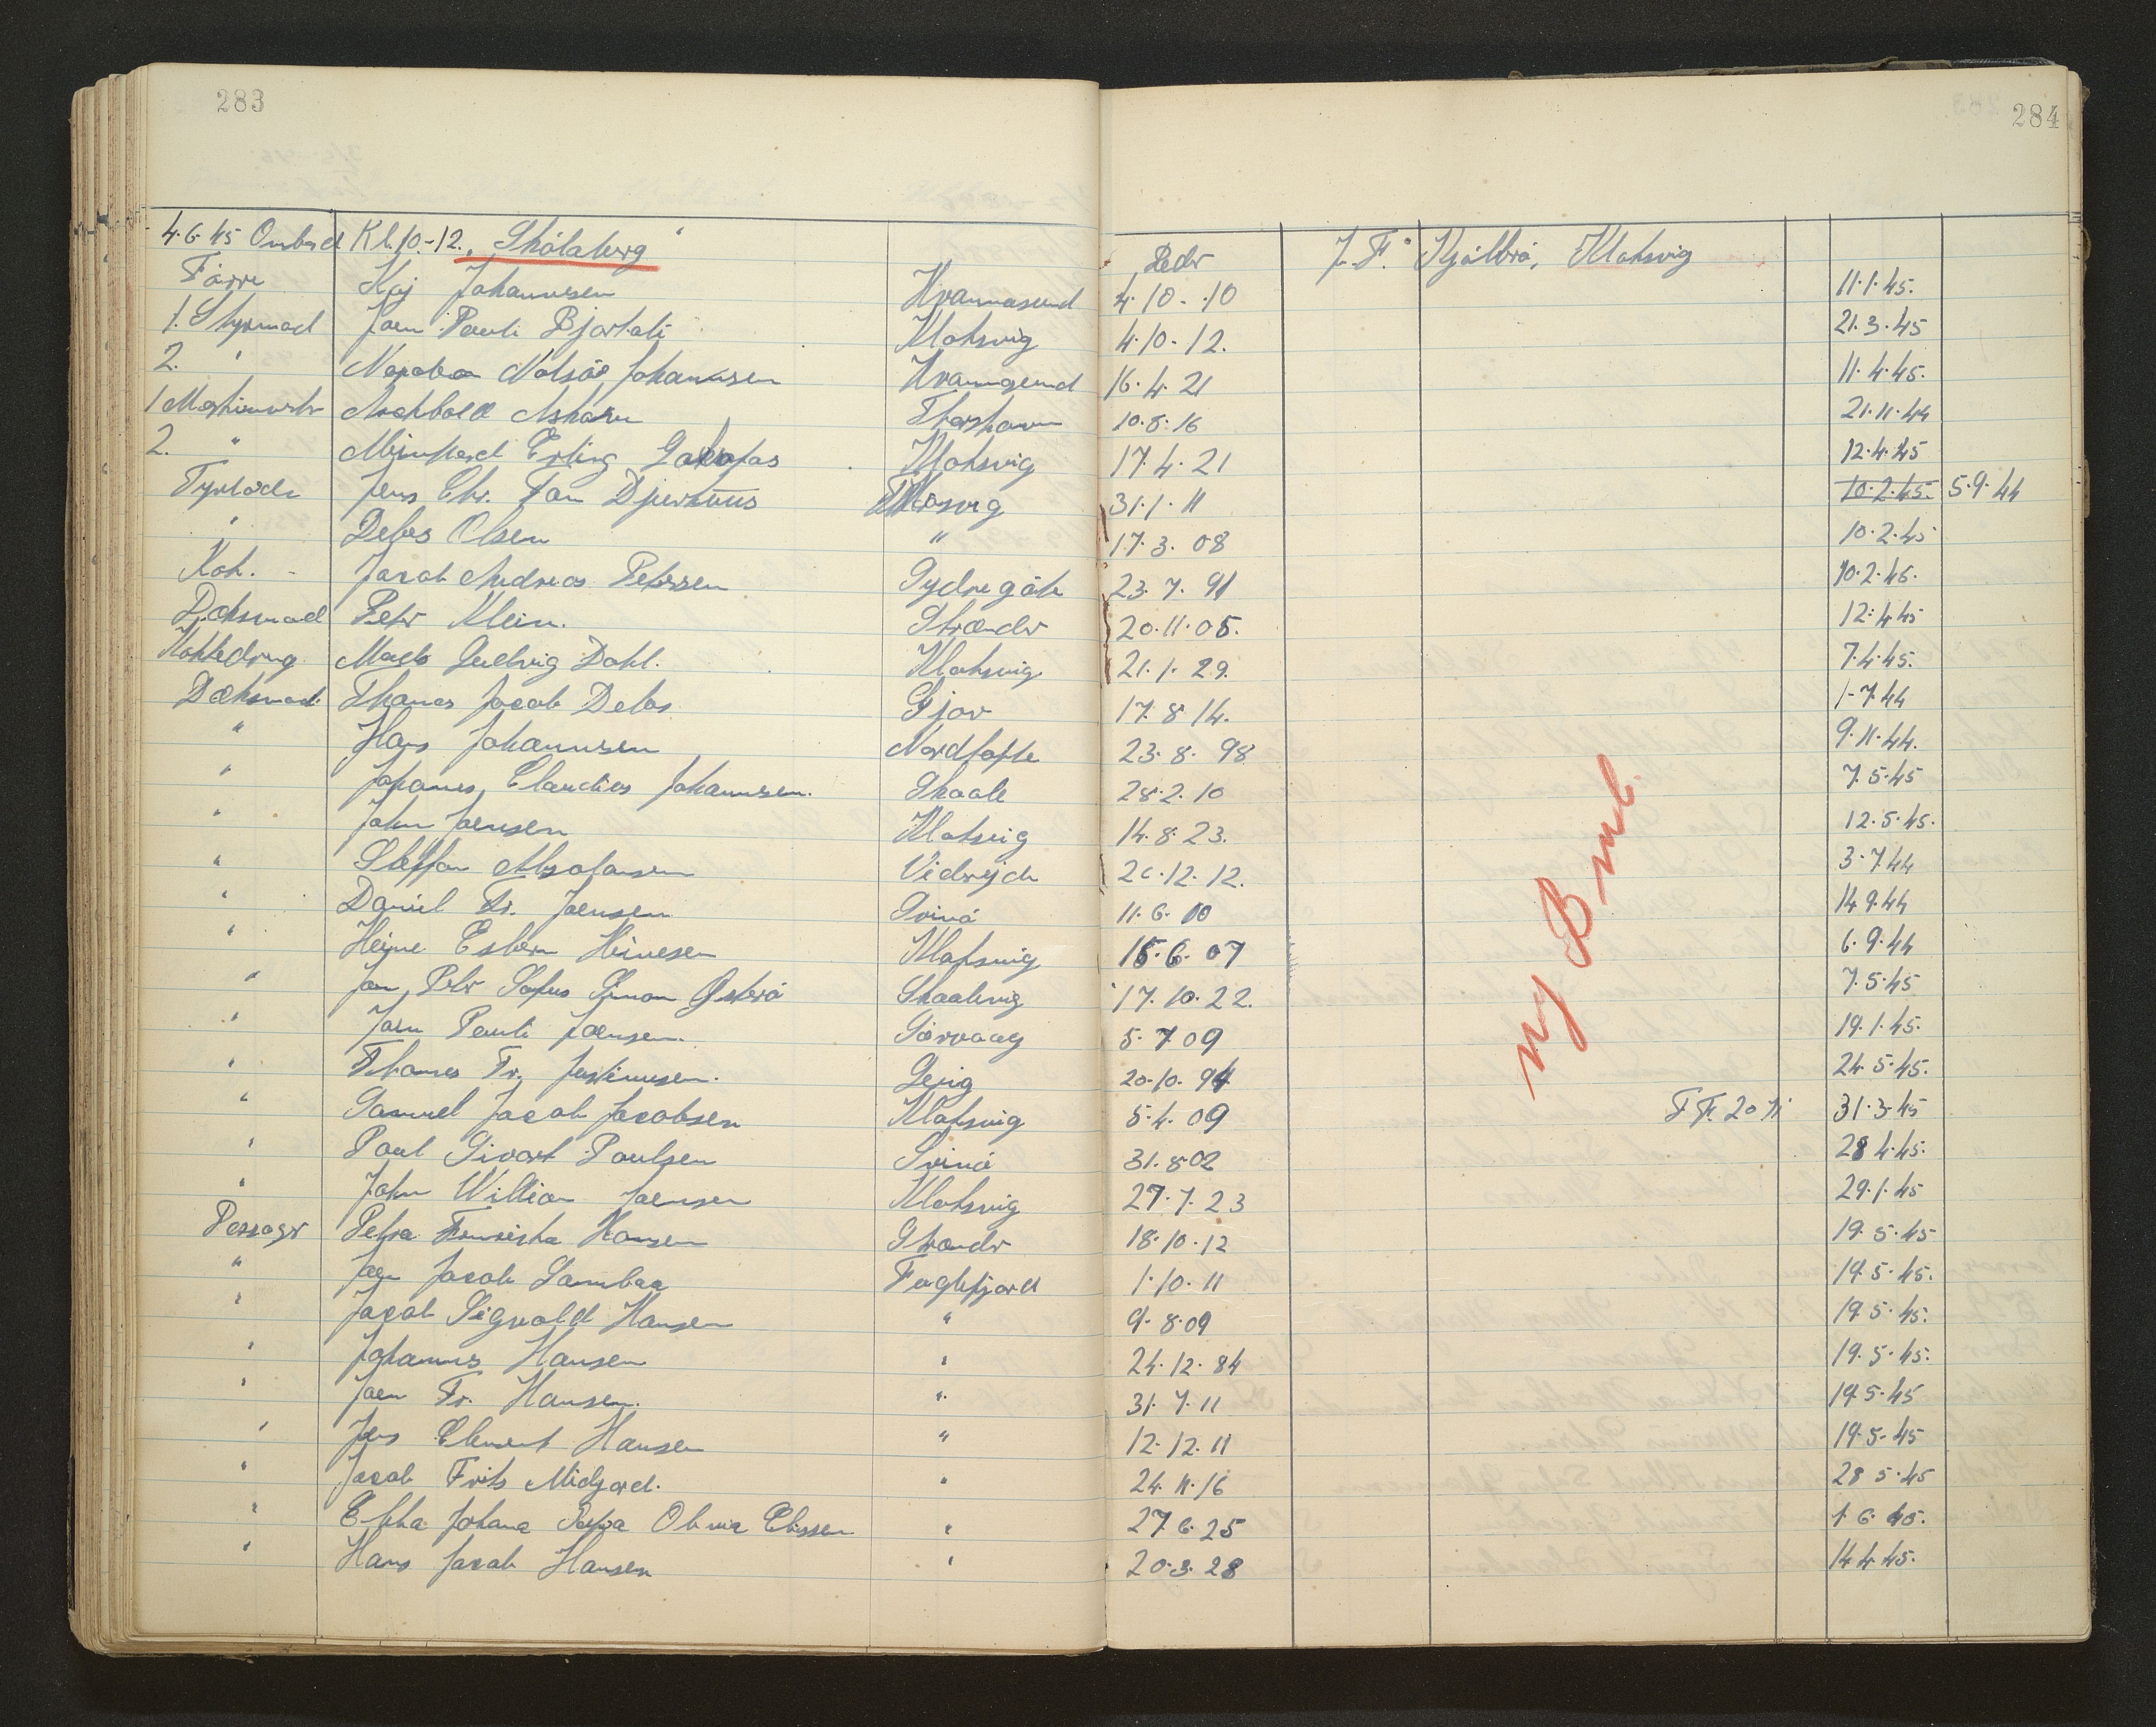 283
284
4.6.45 Onbrd Kl.10-12. "Skålaberg" Reder J.F. Kjølbrö, Klaksvig
Förre Kaj Johannesen Hvannasund 4.10.10 11.1.45.
1. Styrmad Joen Pauli Bjartali Klaksvig 4.10.12. 21.3.45
2. " Nolsöe Johannesen 16.4.21 11.4.45.
Archbold Askham Thorshavn 10.8.16 21.11.44
2. " Erling Klaksvig 17.4.21 12.4.45
Jens Chr. 31.1.11 10.2.45. 5.9.44
" Debes Olsen " 17.3.08 10.2.45
Kok. Jacob Andreas Petersen Sydregöte 23.7.91 10.2.45.
Dæksmad Peter Klein. Strænder 20.11.05. 12.4.45
Kokkedreng Mads Ludvig Dahl. Klaksvig 21.1.29. 7.4.45.
Dæksmad. Thomas Jacob Debes Gjov 17.8.14. 1.7.44
" Hans Johannesen Nordtofte 23.8.98 9.11.44.
" Johanes Claudius Johannesen. Skaale 28.2.10 7.5.45
" John Joensen Klaksvig 14.8.23. 12.5.45.
" Steffan Absalonsen Viderejde 26.12.12. 3.7.44
" Daniel Fr. Joensen Svinö 11.6.00 14.9.44
" Heine Esbern Heinesen Klaksvig 15.6.07 6.9.44
" Jon Peter Sofus Simon Österö Skaalevig 17.10.22. 7.5.45
" Joen Pauli Joensen. Sörvaag 5.7.09 19.1.45.
" Thomas Fr. Justinusen. 20.10.94 24.5.45.
" Samuel Jacob Jacobsen Klaksvig 5.4.09 31.3.45
" Poul Sivert Poulsen Svinö 31.8.02 28.4.45.
" John William Joensen Klaksvig 27.7.23 29.1.45
Passager Petra Hansen Strænder 18.10.12 19.5.45
" Joen Jacob Lambaa Fuglefjord 1.10.11 19.5.45.
" Jacob Sigvald Hansen " 9.8.09 19.5.45.
" Johannes Hansen " 24.12.84 19.5.45.
" Joen Fr. Hansen. " 31.7.11 19.5.45
" Jens Clement Hansen " 12.12.11 19.5.45
" Jacob Frits Midjord. " 24.11.16 28.5.45
" Ebba Johana Olivia Eliesen " 27.6.25 1.6.45.
" Hans Jacob Hansen " 20.3.28 14.4.45.
ny B